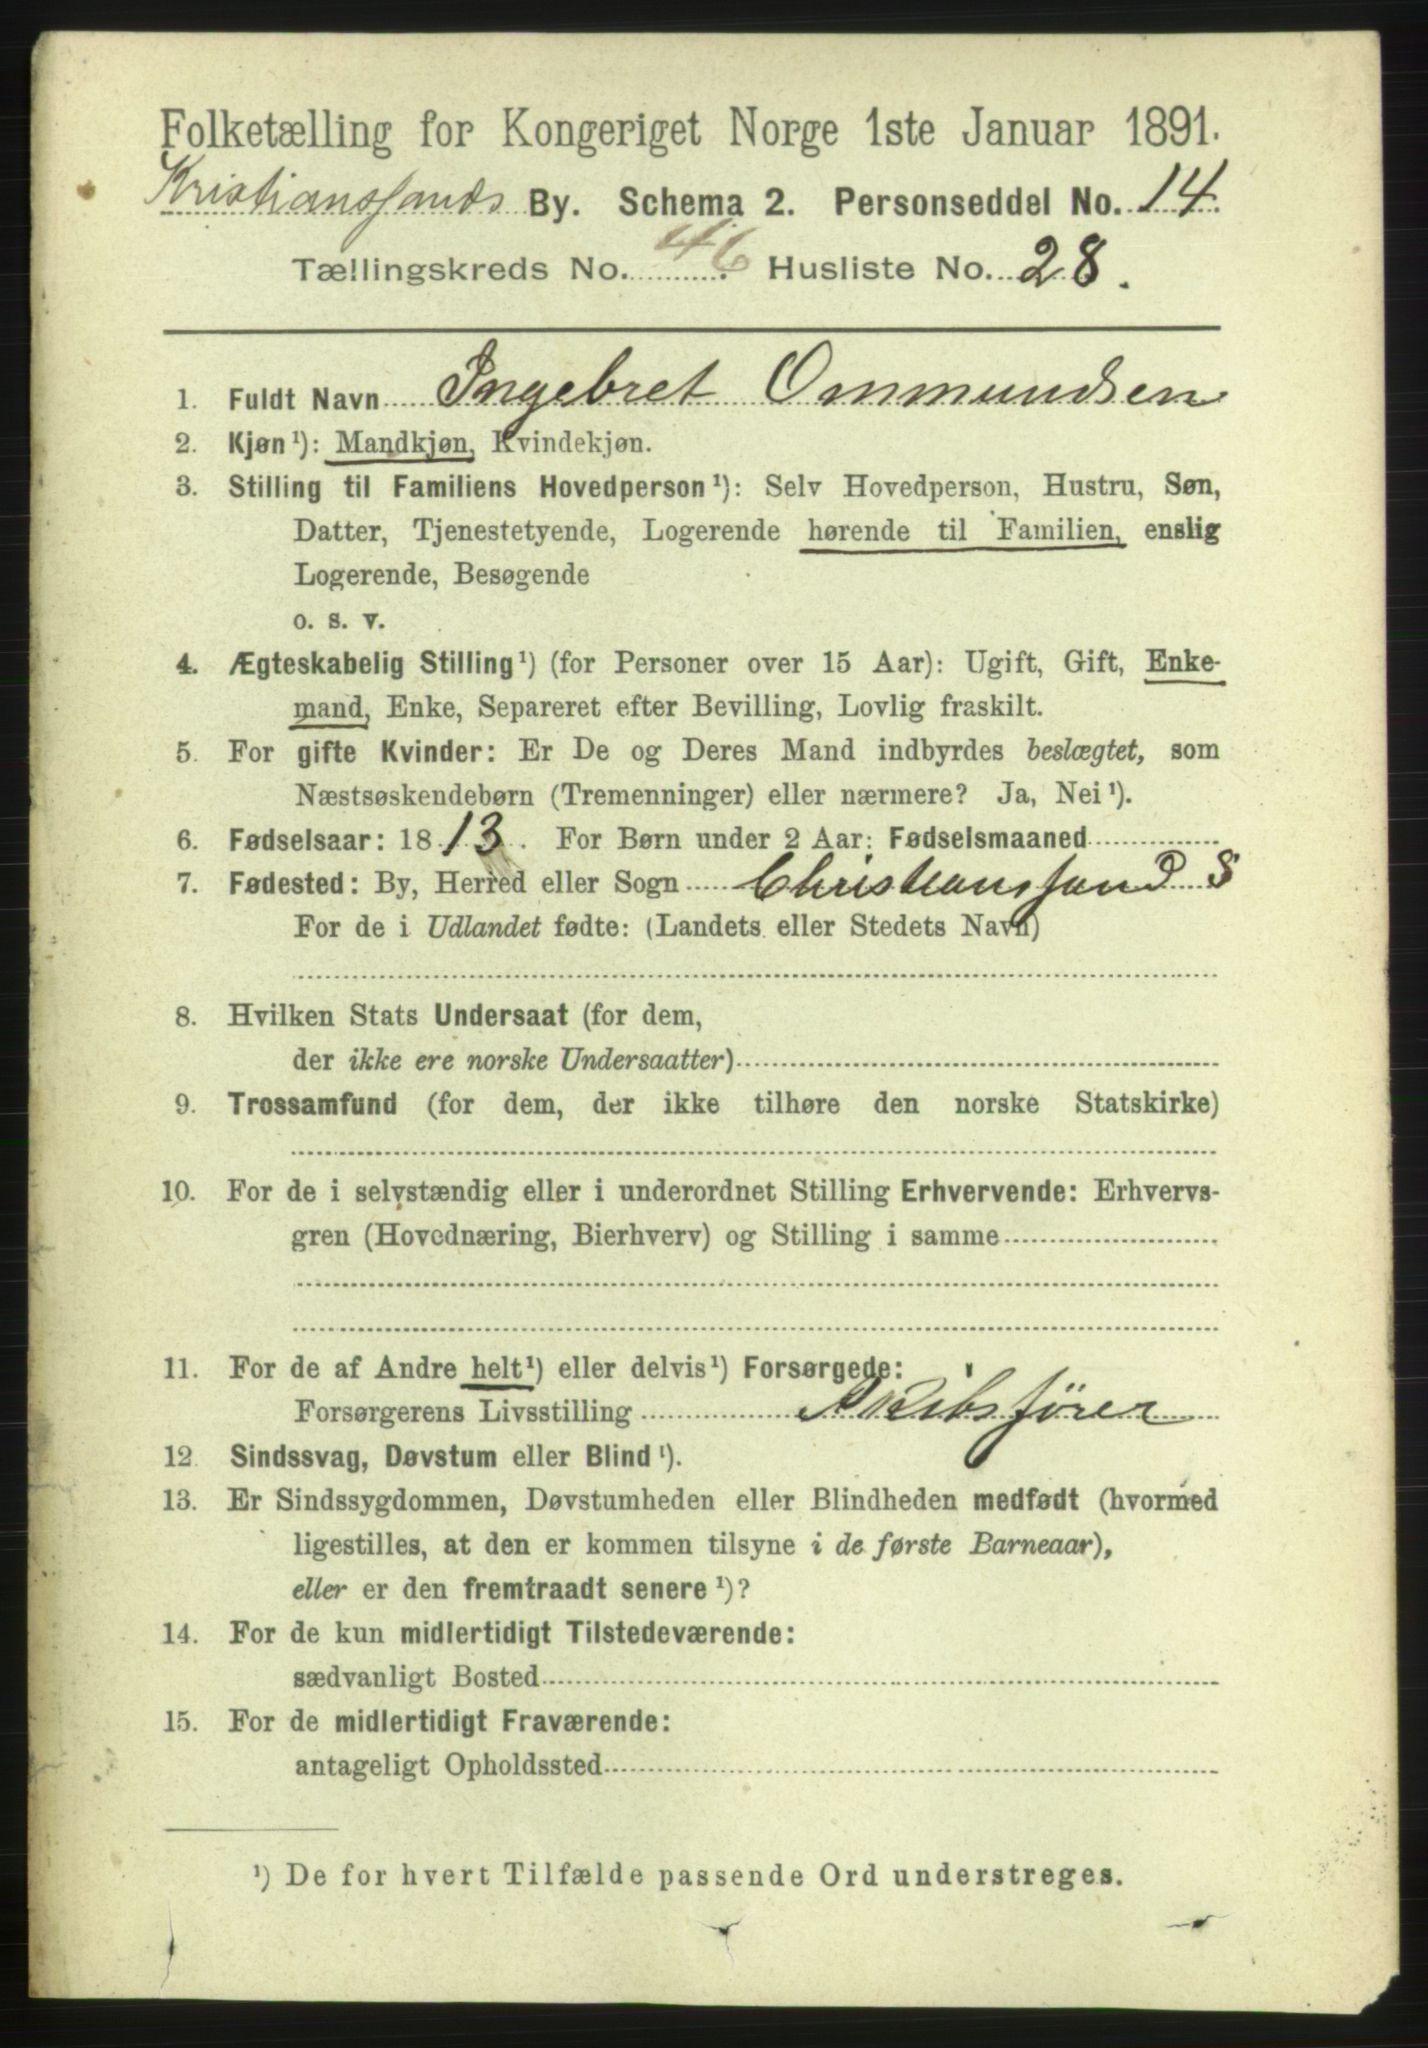 Folketælling for Kongeriget Norge 1ste Januar 1891.
Kristianssands By. Schema 2. Personseddel No. 14
Tællingskreds No. 46 Husliste No. 28.
1. Fuldt Navn Ingebret Ommundsen
2. Kjøn¹): Mandkjøn, Kvindekjøn.
3. Stilling til Familiens Hovedperson¹): Selv Hovedperson, Hustru, Søn,
Datter, Tjenestetyende, Logerende hørende til Familien, enslig
Logerende, Besøgende
o. s. v.
4. Ægteskabelig Stilling¹) (for Personer over 15 Aar): Ugift, Gift, Enke-
mand, Enke, Separeret efter Bevilling, Lovlig fraskilt.
5. For gifte Kvinder: Er De og Deres Mand indbyrdes beslægtet, som
Næstsøskendebørn (Tremenninger) eller nærmere? Ja, Nei¹).
6. Fødselsaar: 1813. For Børn under 2 Aar: Fødselsmaaned
7. Fødested: By, Herred eller Sogn Christianssand S
For de i Udlandet fødte: (Landets eller Stedets Navn)
8. Hvilken Stats Undersaat (for dem,
der ikke ere norske Undersaatter)
9. Trossamfund (for dem, der ikke tilhøre den norske Statskirke)
10. For de i selvstændig eller i underordnet Stilling Erhvervende: Erhvervs-
gren (Hovednæring, Bierhverv) og Stilling i samme
11. For de af Andre helt¹) eller delvis¹) Forsørgede:
Forsørgerens Livsstilling Skibsfører
12. Sindssvag, Døvstum eller Blind¹).
13. Er Sindssygdommen, Døvstumheden eller Blindheden medfødt (hvormed
ligestilles, at den er kommen tilsyne i de første Barneaar),
eller er den fremtraadt senere¹)?
14. For de kun midlertidigt Tilstedeværende:
sædvanligt Bosted
15. For de midlertidigt Fraværende:
antageligt Opholdssted
¹) De for hvert Tilfælde passende Ord understreges.